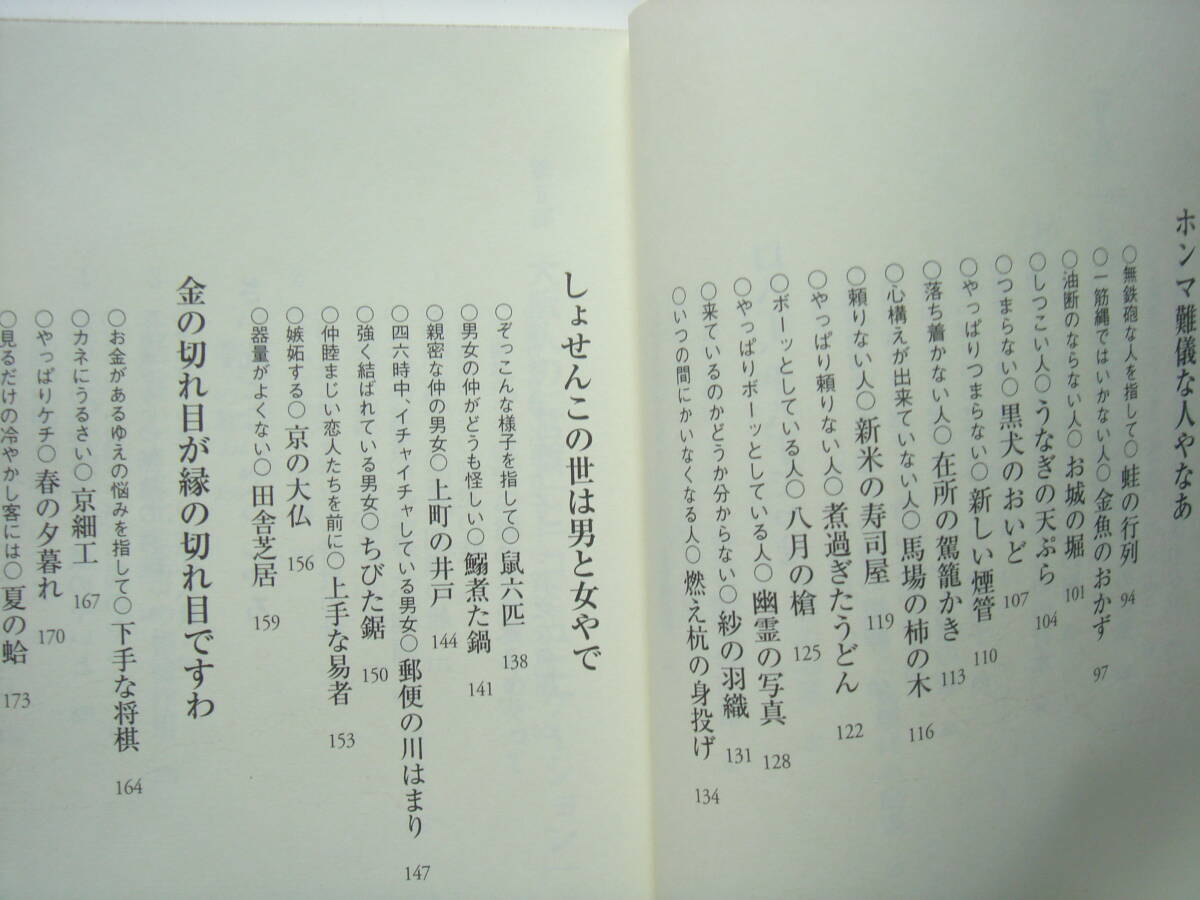 ホンマ難儀な人やなあ
○無鉄砲な人を指して○蛙の行列 94
○一筋縄ではいかない人○金魚のおかず 97
○油断のならない人○お城の堀 101
○しつこい人○うなぎの天ぷら 104
○つまらない○黒犬のおいど 107
○やっぱりつまらない○新しい煙管 110
○落ち着かない人○在所の駕籠かき 113
○心構えが出来ていない人○馬場の柿の木 116
○頼りない人○新米の寿司屋 119
○やっぱり頼りない人○煮過ぎたうどん 122
○ボーッとしている人○八月の槍 125
○やっぱりボーッとしている人○幽霊の写真 128
○来ているのかどうか分からない○紗の羽織 131
○いつの間にかいなくなる人○燃え杭の身投げ 134
しょせんこの世は男と女やで
○ぞっこんな様子を指して○鼠六匹 138
○男女の仲がどうも怪しい○鰯煮た鍋 141
○親密な仲の男女○上町の井戸 144
○四六時中、イチャイチャしている男女○郵便の川はまり 147
○強く結ばれている男女○ちびた鋸 150
○仲睦まじい恋人たちを前に○上手な易者 153
○嫉妬する○京の大仏 156
○器量がよくない○田舎芝居 159
金の切れ目が縁の切れ目ですわ
○お金があるゆえの悩みを指して○下手な将棋 164
○カネにうるさい○京細工 167
○やっぱりケチ○春の夕暮れ 170
○見るだけの冷やかし客には○夏の蛤 173